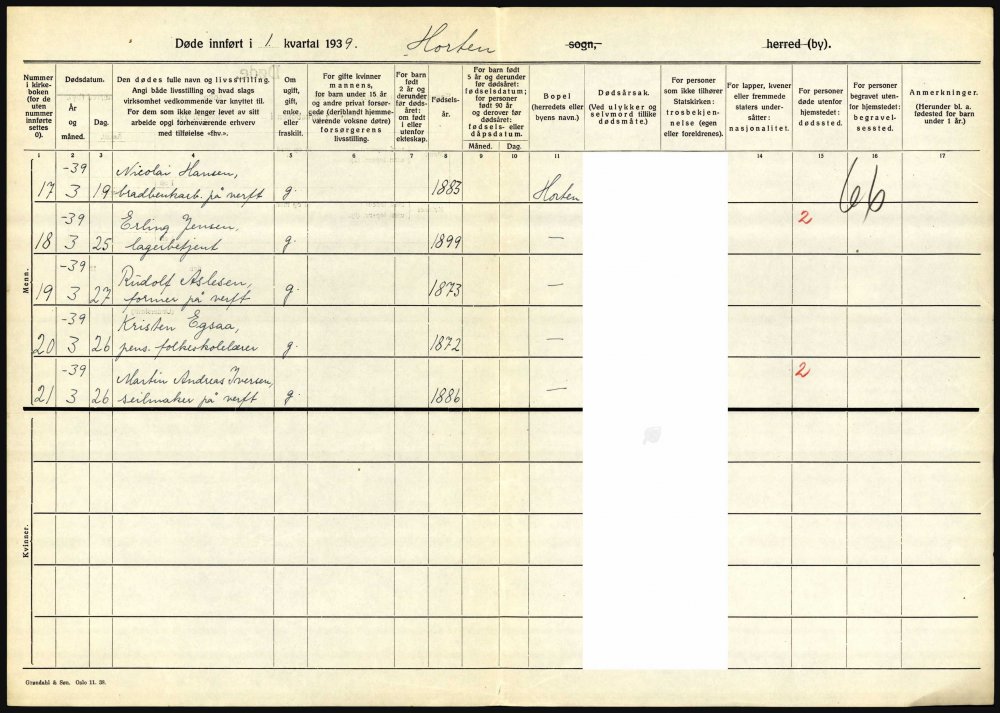 Døde innført i 1. kvartal 1939. Horten sogn, herred (by).
Nummer i kirkeboken (for de uten nummer innføres settes 0).
Dødsdatum.
År og måned.
Dag.
Den dødes fulle navn og livsstilling.
Angi både livsstilling og hvad slags
virksomhet vedkommende var knyttet til.
For dem som ikke lenger levet av sitt
arbeide opgi forhenværende erhverv
med tilføielse «fhv.».
Om ugift, gift, enke, eller fraskilt.
For gifte kvinner
mannens,
for barn under 15 år
og andre privat forsørgede (deriblandt hjemmeværende voksne døtre)
forsørgerens
livsstilling.
For barn født 2 år og derunder før dødsåret: om født i eller utenfor ekteskap.
Fødselsår.
For barn født
5 år og derunder
før dødsåret:
fødselsdatum;
for personer
født 90 år
og derover før
dødsåret:
fødsels- eller
dåpsdatum.
Måned. Dag.
Bopel
(herredets eller
byens navn.)
Dødsårsak.
(Ved ulykker og
selvmord tillike
dødsmåte.)
For personer
som ikke tilhører
Statskirken:
trosbekjennelse (egen
eller foreldrenes).
For lapper, kvener
eller fremmede
staters undersåtter:
nasjonalitet.
For personer
døde utenfor
hjemstedet:
dødssted.
For personer
begravet utenfor
hjemstedet:
begravelsessted.
Anmerkninger.
(Herunder bl. a.
fødested for barn
under 1 år.)
1 2 3 4 5 6 7 8 9 10 11 14 15 16 17
Menn.
-39 Nicolai Hansen,
17 3 19 bradbenkarb. på verft g. 1883 Horten 66
-39 Erling Jensen, 2
18 3 25 lagerbetjent g. 1899 —
-39 Rudolf Aslesen,
19 3 27 former på verft g. 1873 —
-39 Kristen Egsaa,
20 3 26 pens. folkeskolelærer g. 1872 —
-39 Martin Andreas Iversen, 2
21 3 26 seilmaker på verft g. 1886 —
Kvinner.
Grøndahl & Søn. Oslo 11. 38.